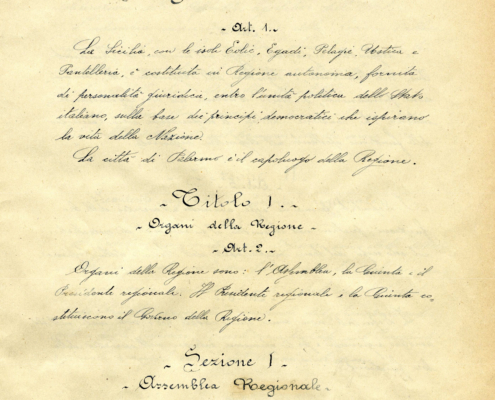 - Art. 1. -
La Sicilia, con le isole Eolie, Egadi, Pelagie, Ustica e
Pantelleria, è costituita in Regione autonoma, fornita
di personalità giuridica, entro l'unità politica dello Stato
italiano, sulla base dei principi democratici che ispirano
la vita della Nazione.
La città di Palermo è il capoluogo della Regione.
- Titolo I. -
- Organi della Regione -
- Art. 2. -
Organi della Regione sono: l'Assemblea, la Giunta e il
Presidente regionale. Il Presidente regionale e la Giunta co_
stituiscono il Governo della Regione.
- Sezione I -
- Assemblea Regionale -